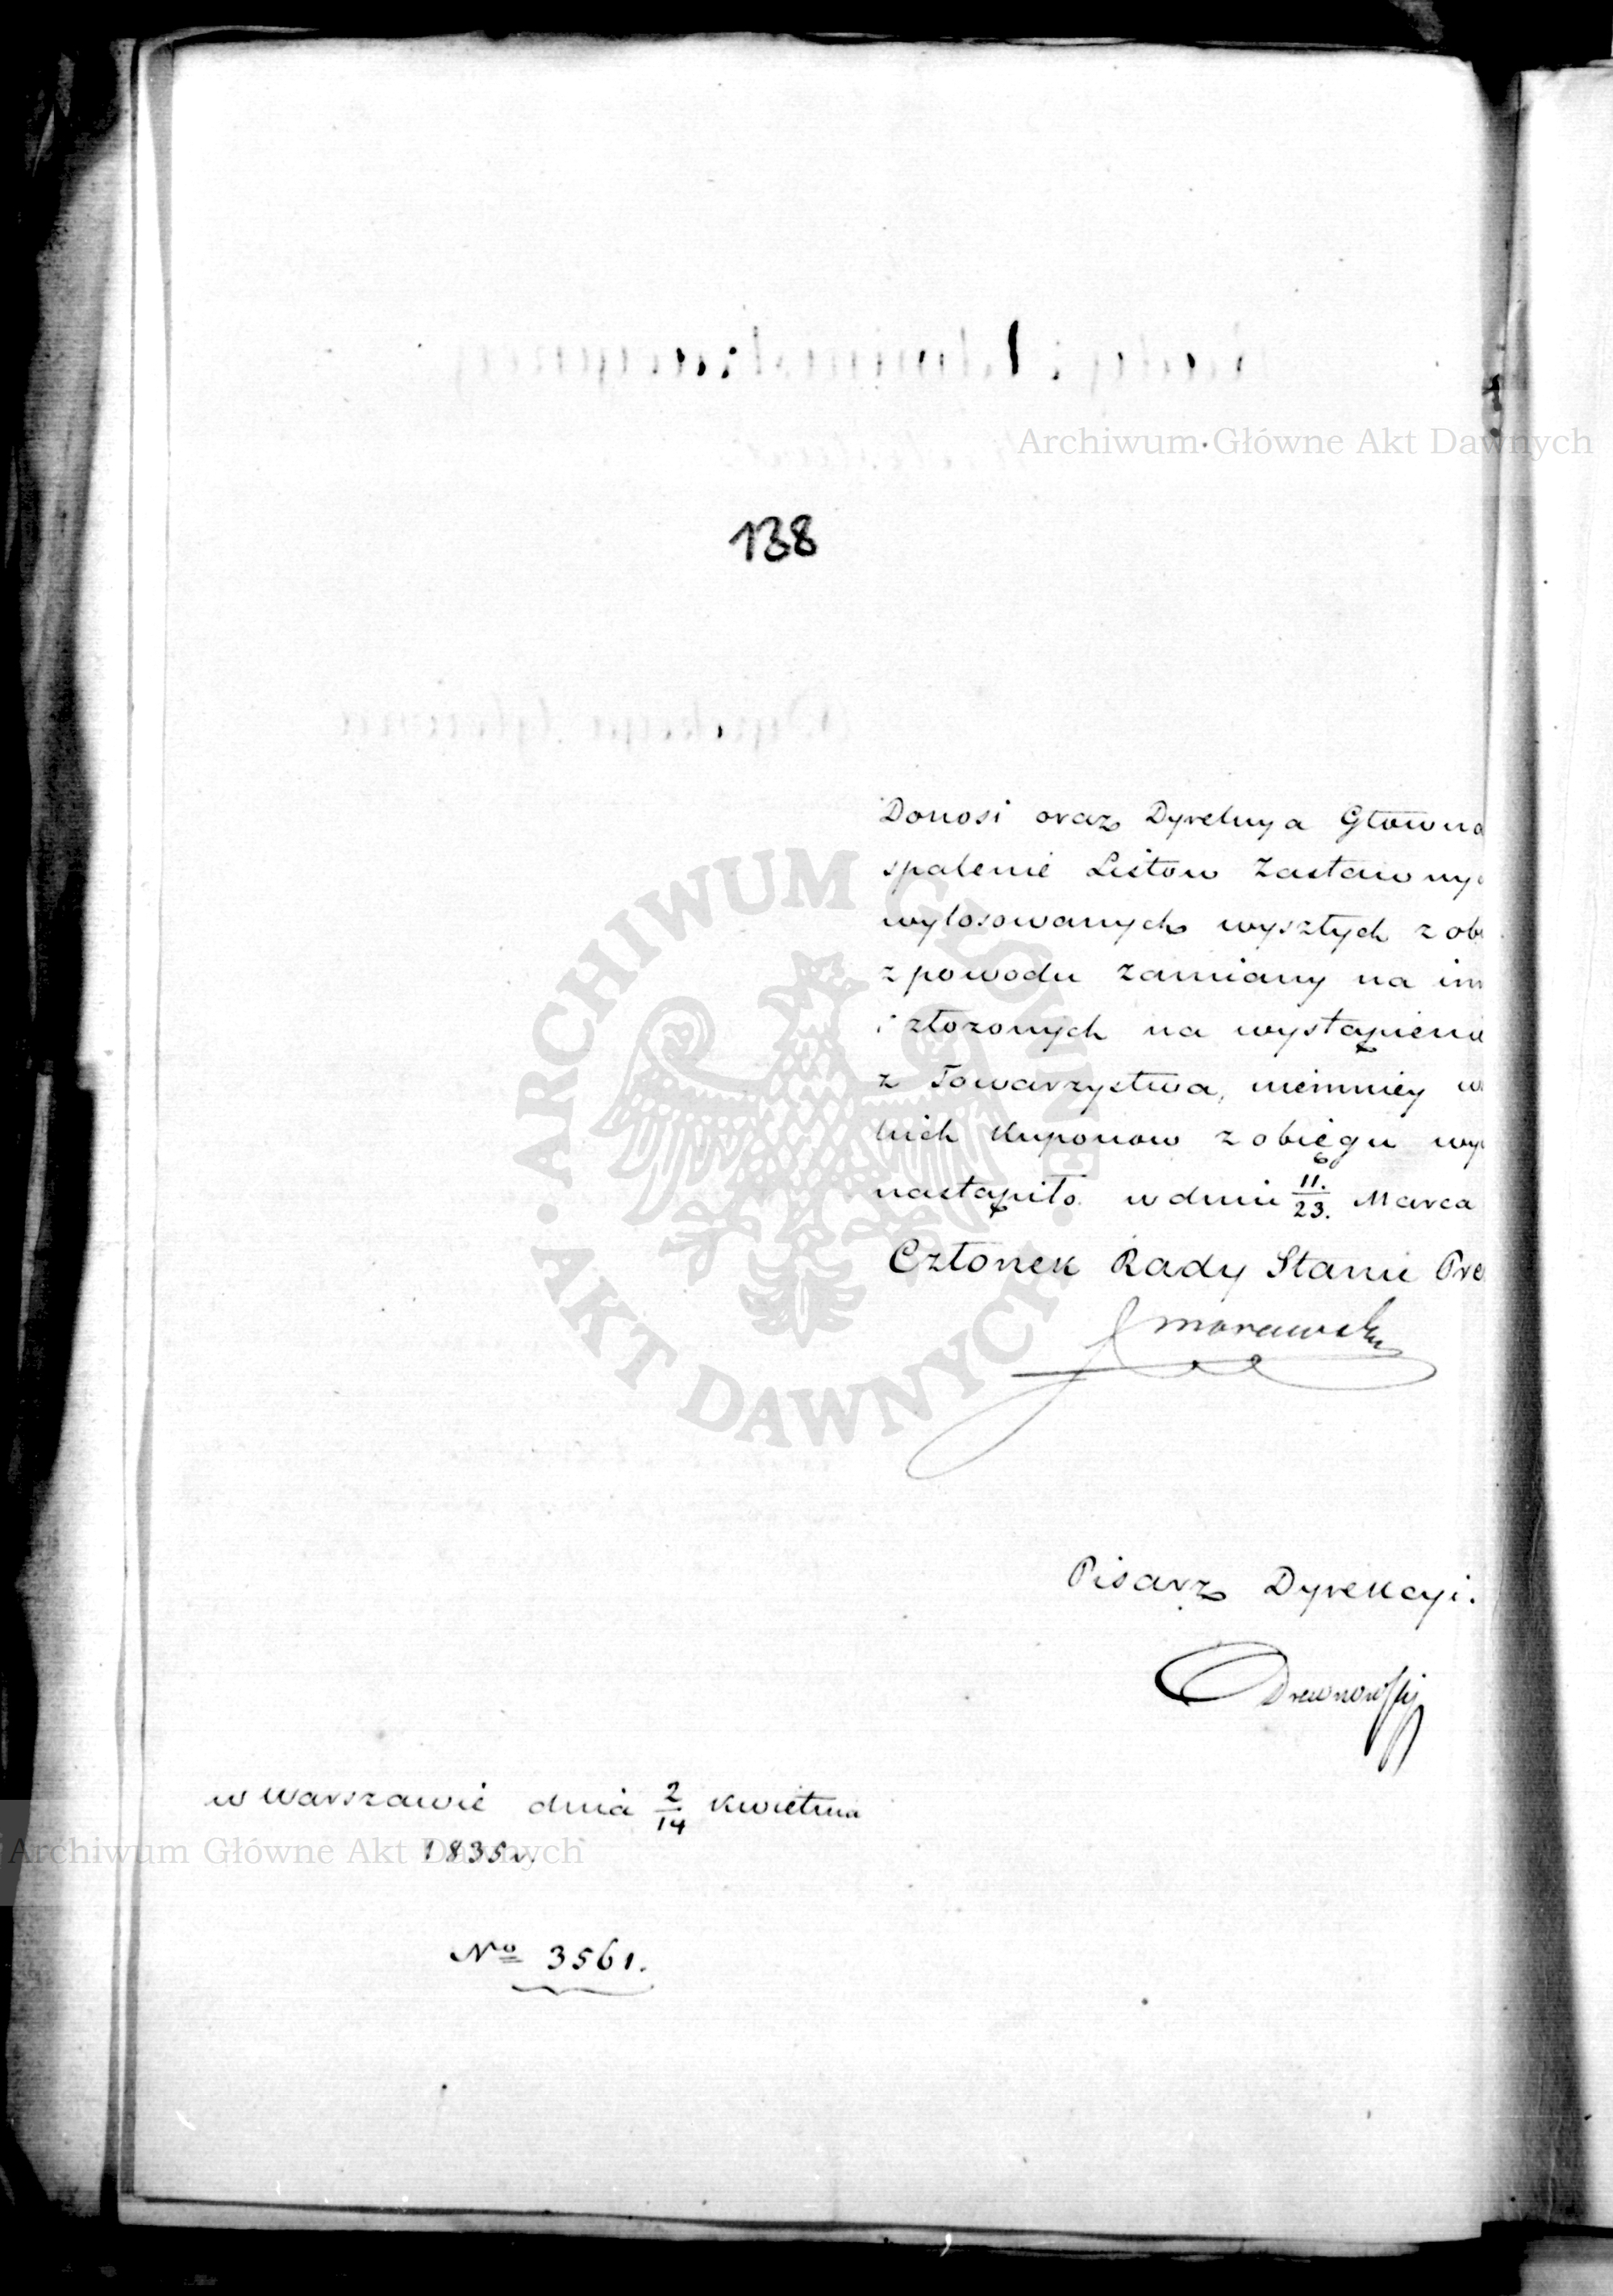 Archiwum Główne Akt Dawnych
138
Donosi oraz Dyrekcya Główna
spalenie Listów Zastawnyc
wylosowanych wyszłych z obi
z powodu zamiany na inn
i złożonych na wystąpienie
z Towarzystwa, niemniey w
kich Kuponów z obiegu wy
nastąpiło w dniu 11./23. Marca
Członek Rady Stanu Pre
Morawski
Pisarz Dyrekcyi.
Drewnowski
w Warszawie dnia 2/14 Kwietnia
1835 r.
Archiwum Główne Akt Dawnych
No 3561.
ARCHIWUM GŁÓWNE · AKT DAWNYCH ·